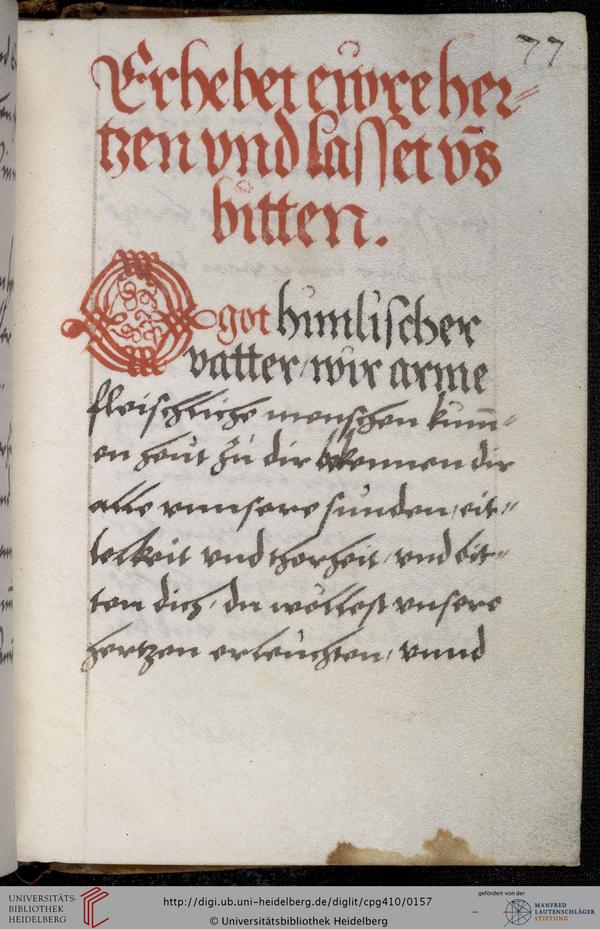 77
Erhebet eüwre her-
tzen vnd lasset vn̄s
bitten.
O got himlischer
vatter / wir arme
fleischliche menschen kum̄-
en heüt zü dir bekennen dir
alle vnnsere sünden / eit-
telkeit vnd thorheit / vnd bit-
ten dich / du wöllest vnsere
hertzen erleüchten / vnnd
UNIVERSITÄTS-
BIBLIOTHEK
HEIDELBERG
http://digi.ub.uni-heidelberg.de/diglit/cpg410/0157
© Universitätsbibliothek Heidelberg
gefördert von der
MANFRED
LAUTENSCHLÄGER
STIFTUNG